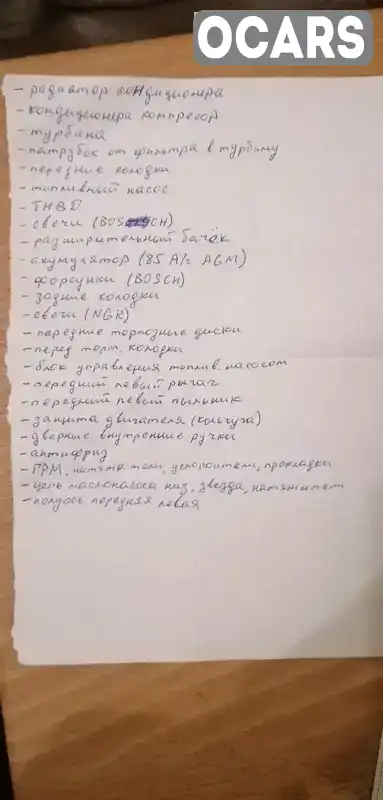 OCARS
- радиатор кондиционера
- кондиционера компресор
- турбина
- патрубок от фильтра в турбину
- передние колодки
- топливный насос
- ТНВД
- свечи (BOSCH)
- разширительный бачёк
- акумулятор (85 А/г AGM)
- форсунки (BOSCH)
- задние колодки
- свечи (NGK)
- передние тормозные диски
- перед торм. колодки
- блок управления топлив. насосом
- передний левый рычаг
- передний левый пыльник
- защита двигателя (кольчуга)
- дверные внутренние ручки
- антифриз
- ГРМ, натяжители, успокоители, прокладки
- цепь маслонасоса низ, звезда, натяжители
- полуось передняя левая